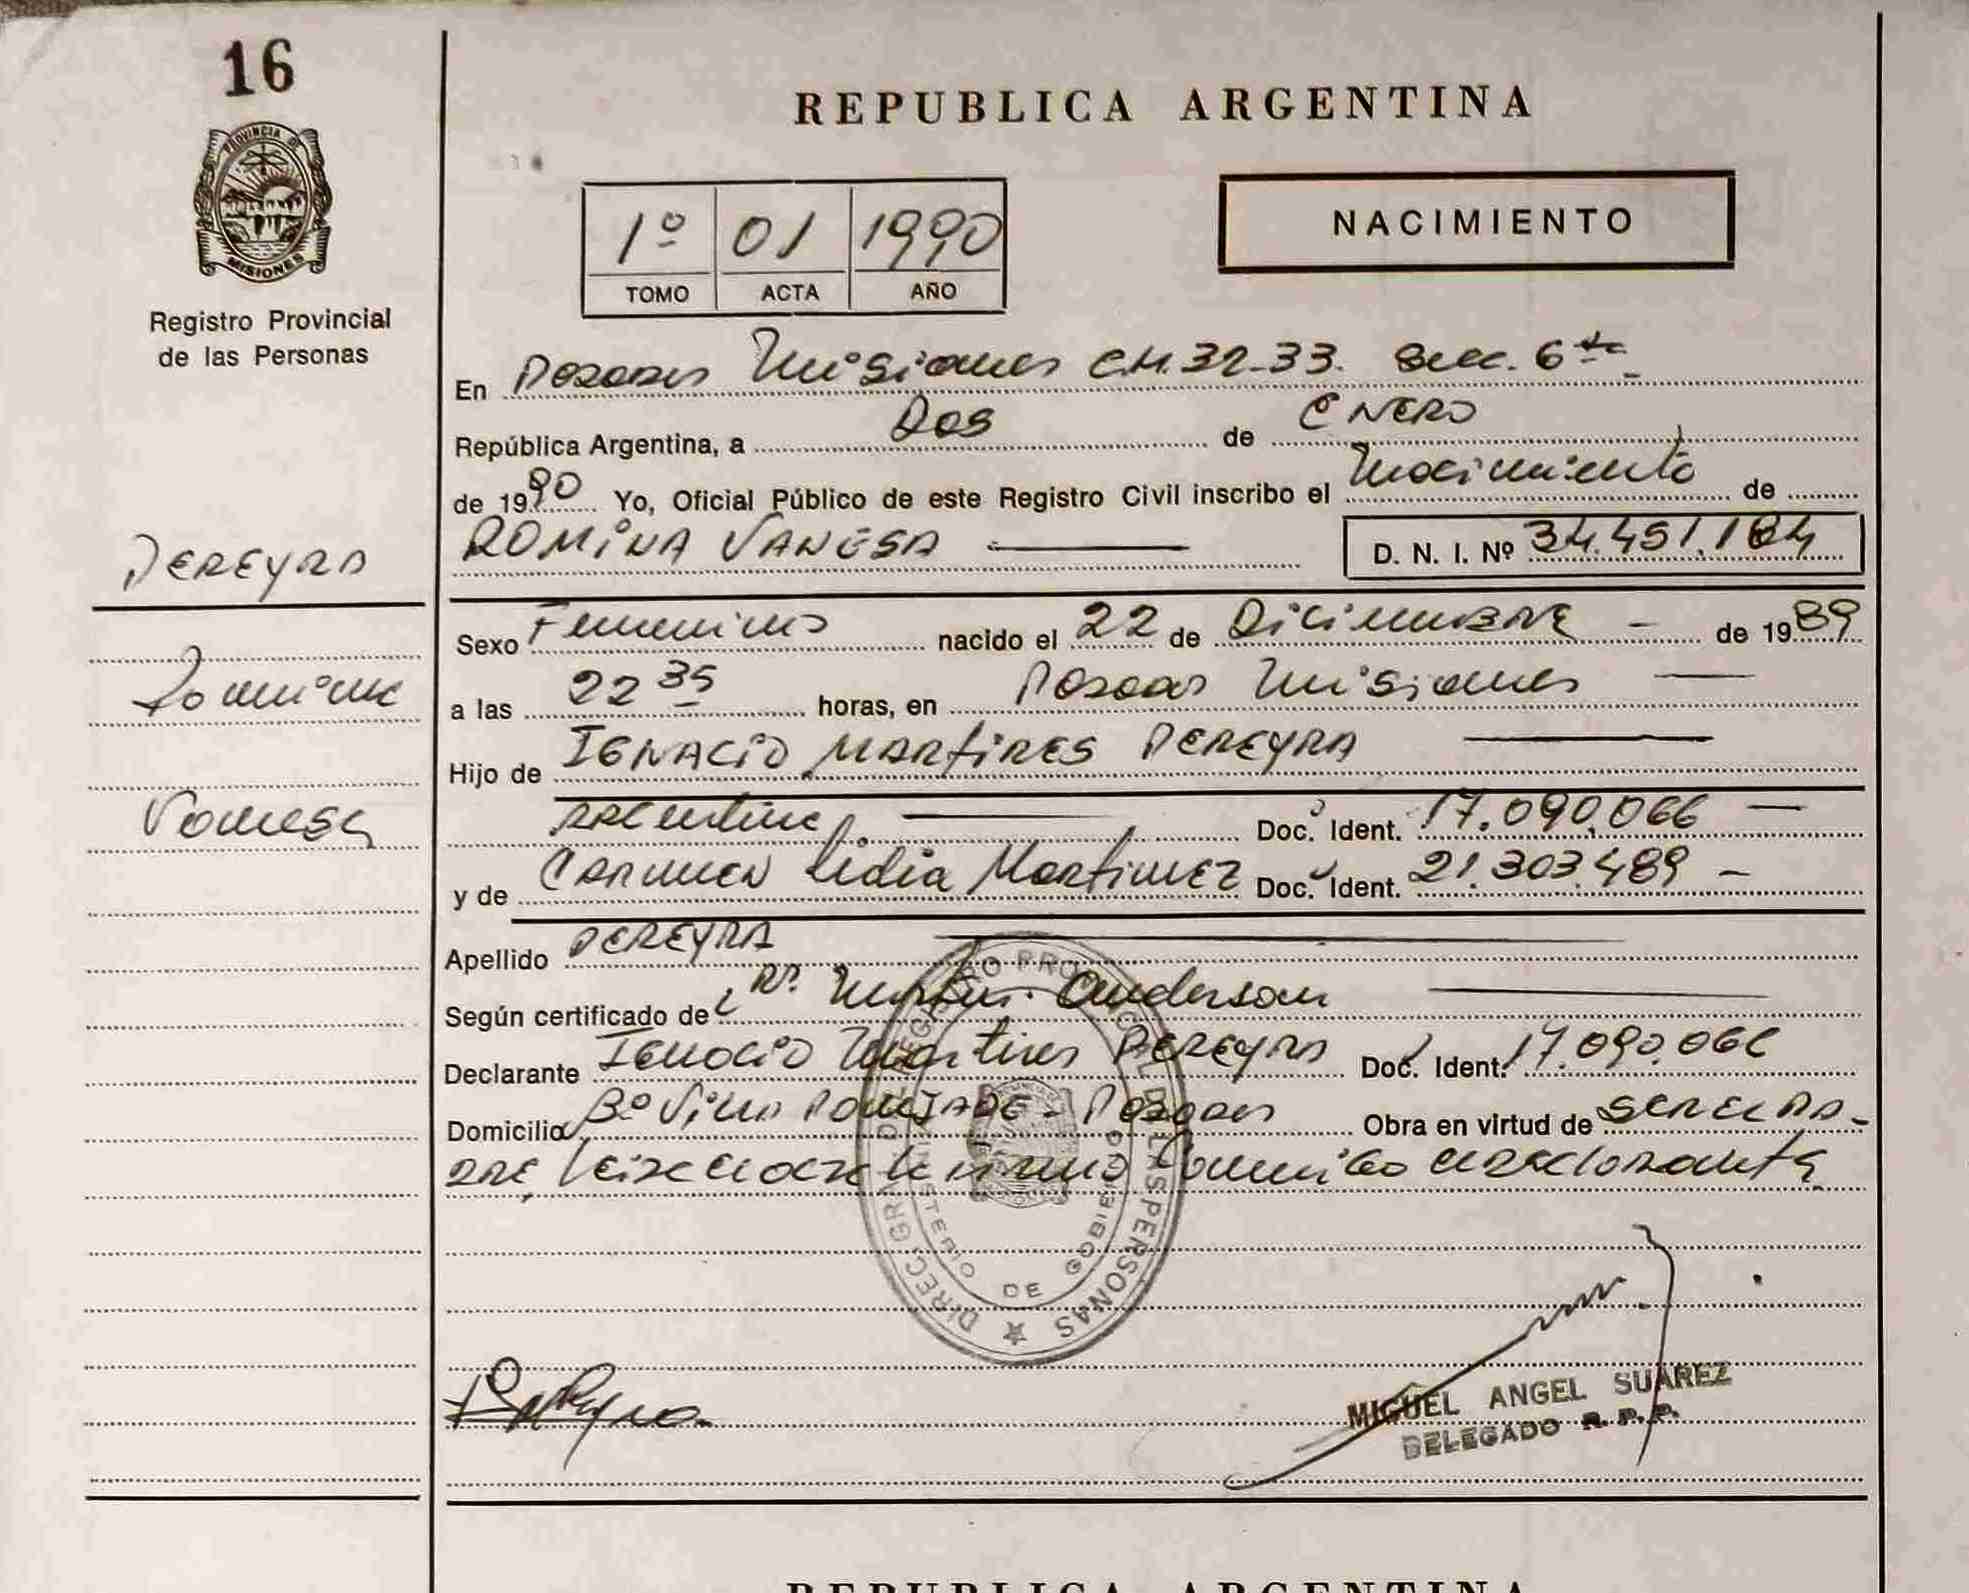 16
PROVINCIA DE
MISIONES
Registro Provincial
de las Personas
PEREYRA
Romina
Vanesa
REPUBLICA ARGENTINA
1º 01 1990
TOMO ACTA AÑO
NACIMIENTO
En Posadas Misiones CH. 32-33. Secc. 6ta
República Argentina, a Dos de ENERO
de 1990 Yo, Oficial Público de este Registro Civil inscribo el Nacimiento de
ROMINA VANESA D. N. I. Nº 34.451.184
Sexo Femenino nacido el 22 de Diciembre de 1989
a las 22 35 horas, en Posadas Misiones
Hijo de IGNACIO MARTIRES PEREYRA
argentino Doc. Ident. 17.090.066
y de CARMEN Lidia Martinez Doc. Ident. 21.303.489
Apellido PEREYRA
Según certificado de Dr. Anderson
Declarante Ignacio Martires PEREYRA Doc. Ident. 17.090.066
Domicilio Bº Villa POUJADE - Posadas Obra en virtud de SER EL PA-
DRE, Leida el acta la firma conmigo el declarante
DIREC. GRAL. DEL REGISTRO PROVINCIAL DE LAS PERSONAS
MINISTERIO DE GOBIERNO
MIGUEL ANGEL SUAREZ
DELEGADO R.P.P.
REPUBLICA ARGENTINA